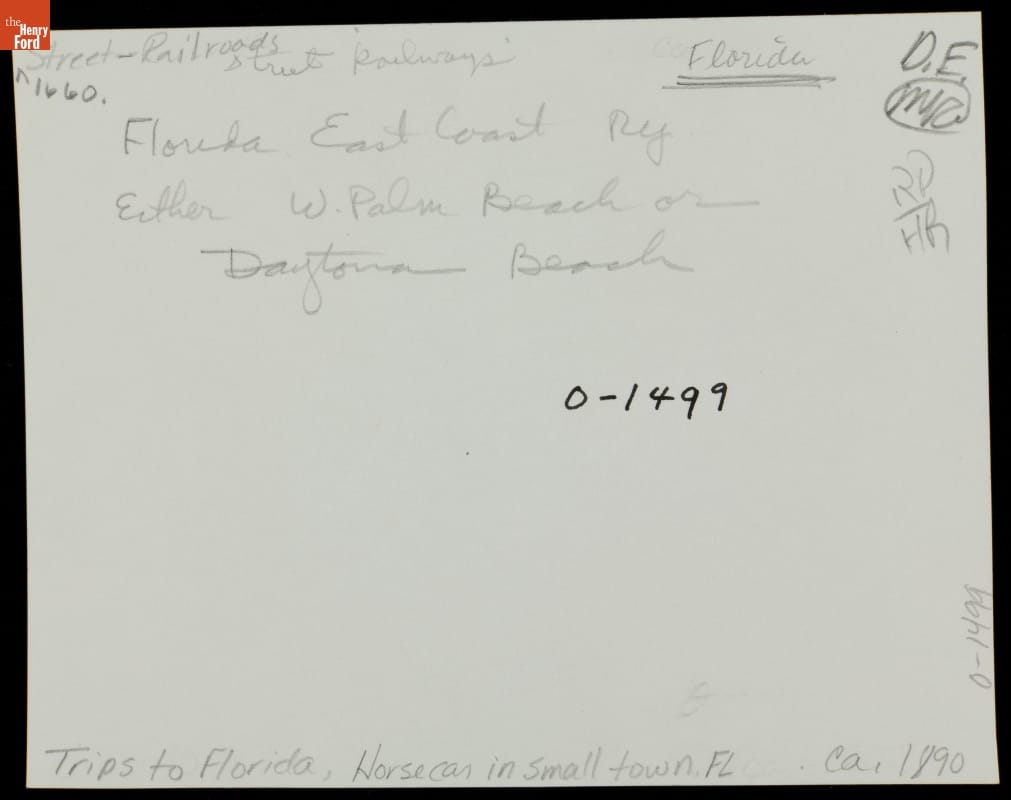 the
Henry
Ford
Street-Railroads
Street Railways
Florida
D.E.
1660.
Florida East Coast Ry
Either W. Palm Beach or
Daytona Beach
0-1499
0-1499
Trips to Florida, Horsecar in small town. FL . ca. 1890